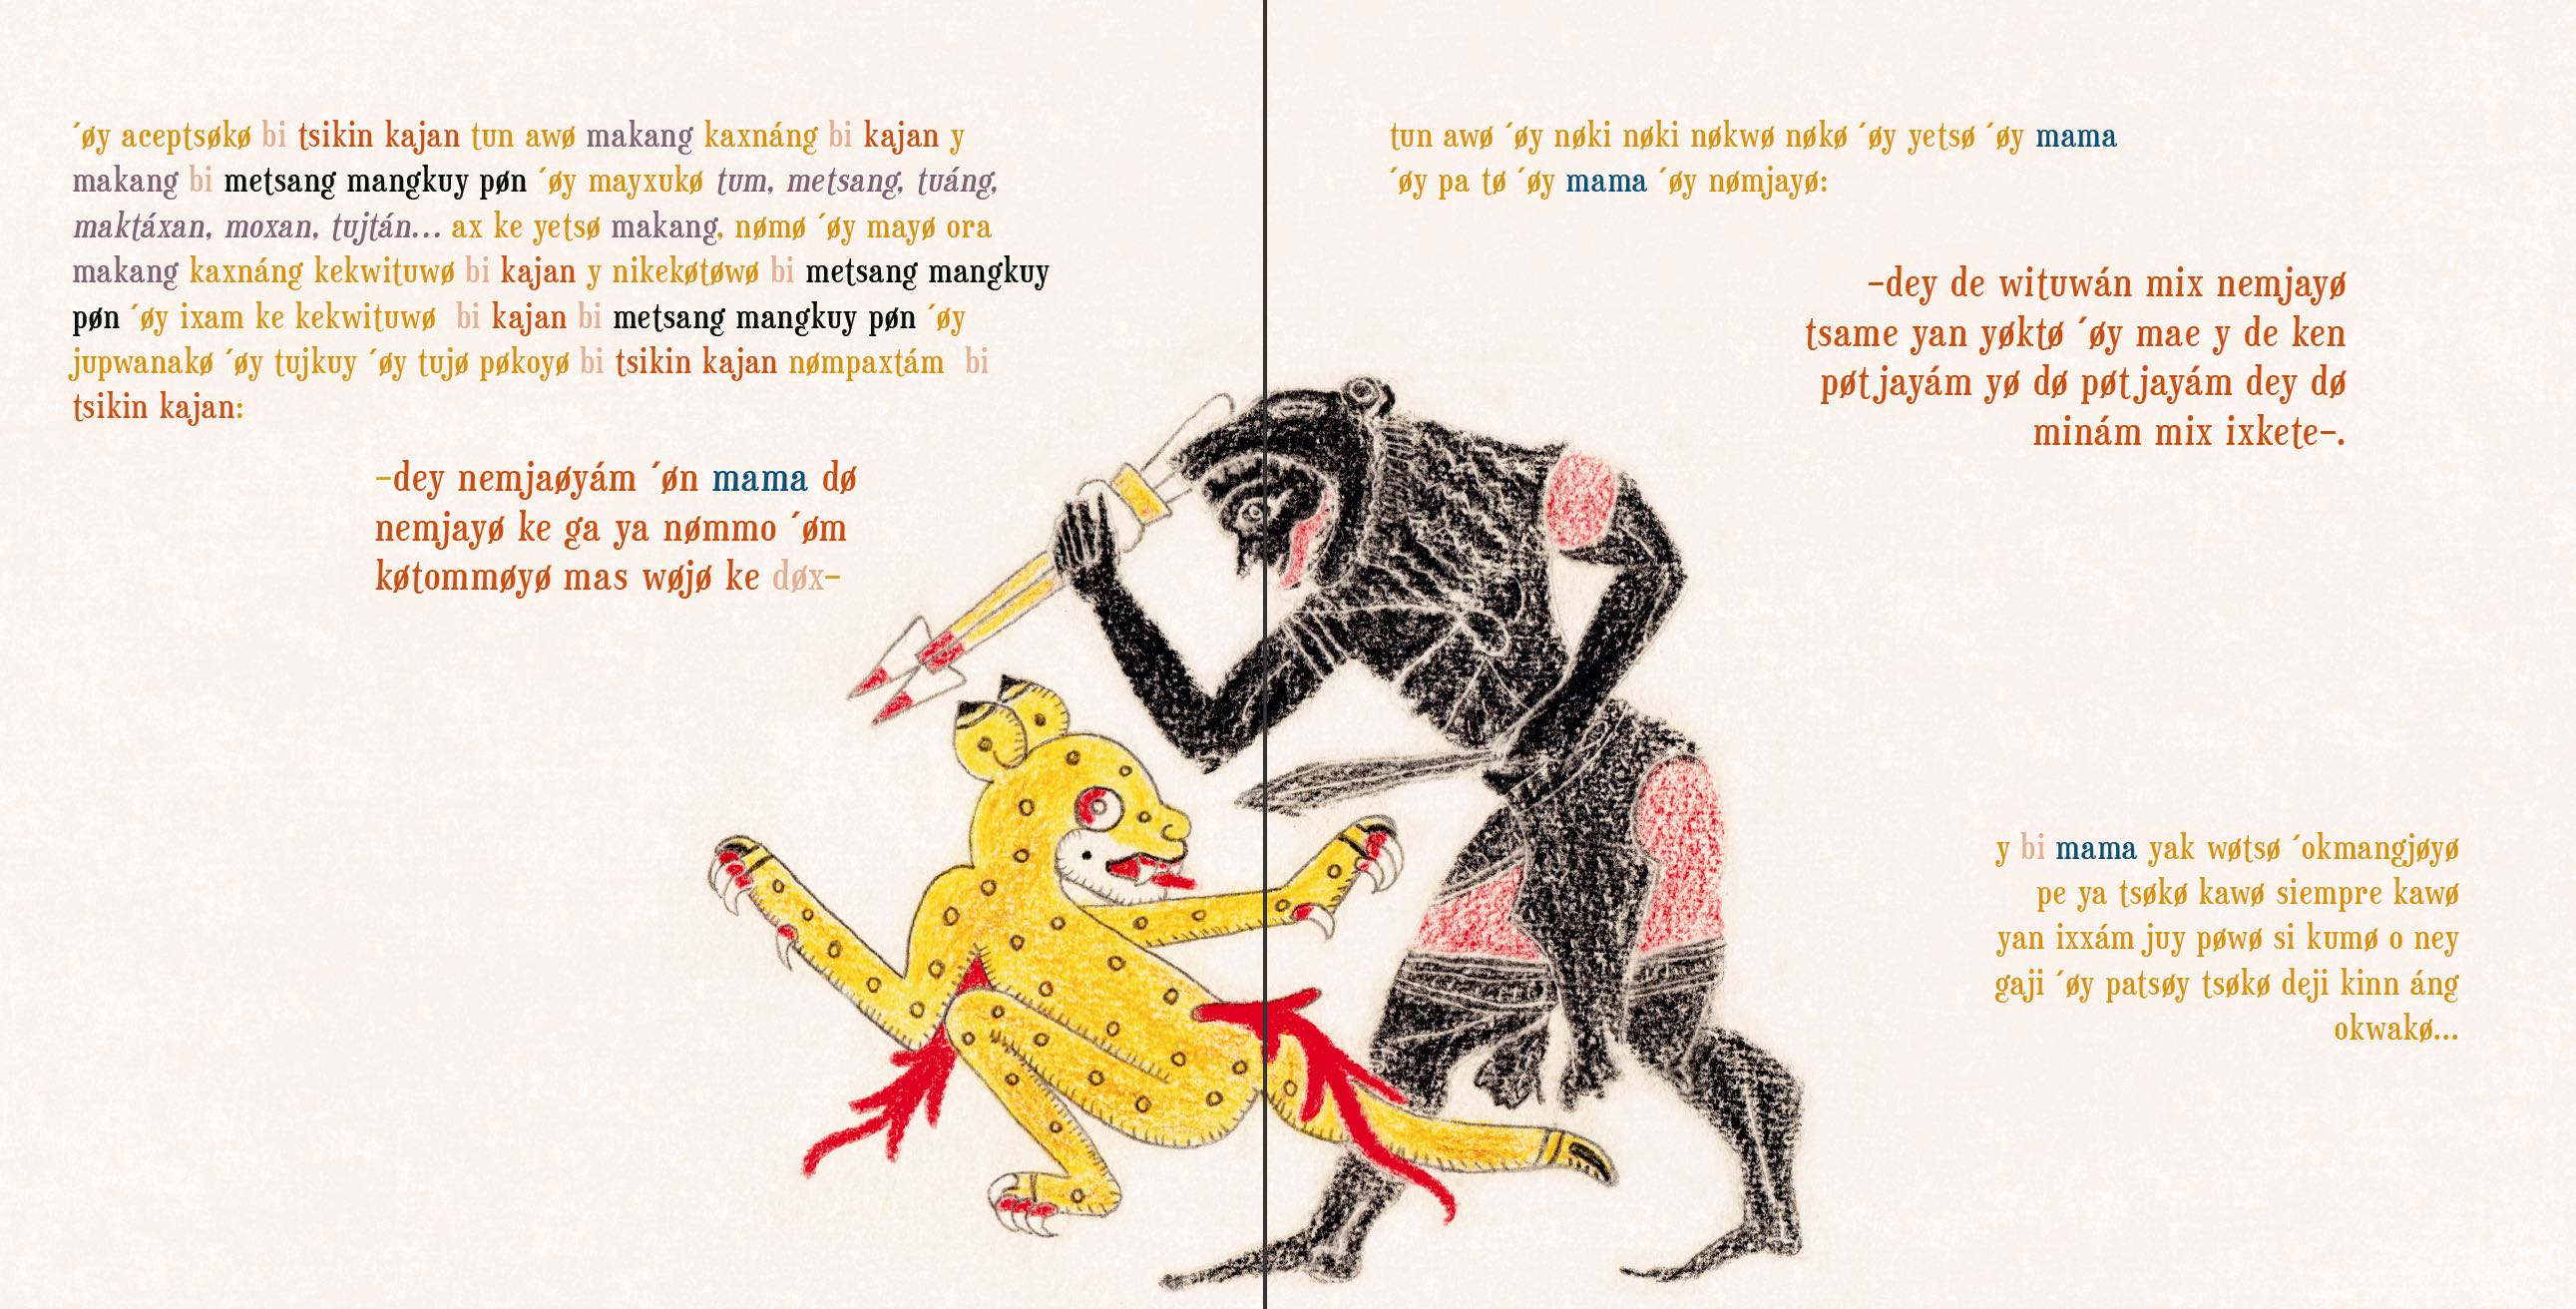 ´øy aceptsøkø bi tsikin kajan tun awø makang kaxnáng bi kajan y
makang bi metsang mangkuy pøn ´øy mayxukø tum, metsang, tuáng,
maktáxan, moxan, tujtán... ax ke yetsø makang, nømø ´øy mayø ora
makang kaxnáng kekwituwø bi kajan y nikekøtøwø bi metsang mangkuy
pøn ´øy ixam ke kekwituwø bi kajan bi metsang mangkuy pøn ´øy
jupwanakø ´øy tujkuy ´øy tujø pøkoyø bi tsikin kajan nømpaxtám bi
tsikin kajan:
–dey nemjaøyám ´øn mama dø
nemjayø ke ga ya nømmo ´øm
køtommøyø mas wøjø ke døx–
tun awø ´øy nøki nøki nøkwø nøkø ´øy yetsø ´øy mama
´øy pa tø ´øy mama ´øy nømjayø:
–dey de wituwán mix nemjayø
tsame yan yøktø ´øy mae y de ken
pøt jayám yø dø pøt jayám dey dø
minám mix ixkete–.
y bi mama yak wøtsø ´okmangjøyø
pe ya tsøkø kawø siempre kawø
yan ixxám juy pøwø si kumø o ney
gaji ´øy patsøy tsøkø deji kinn áng
okwakø...